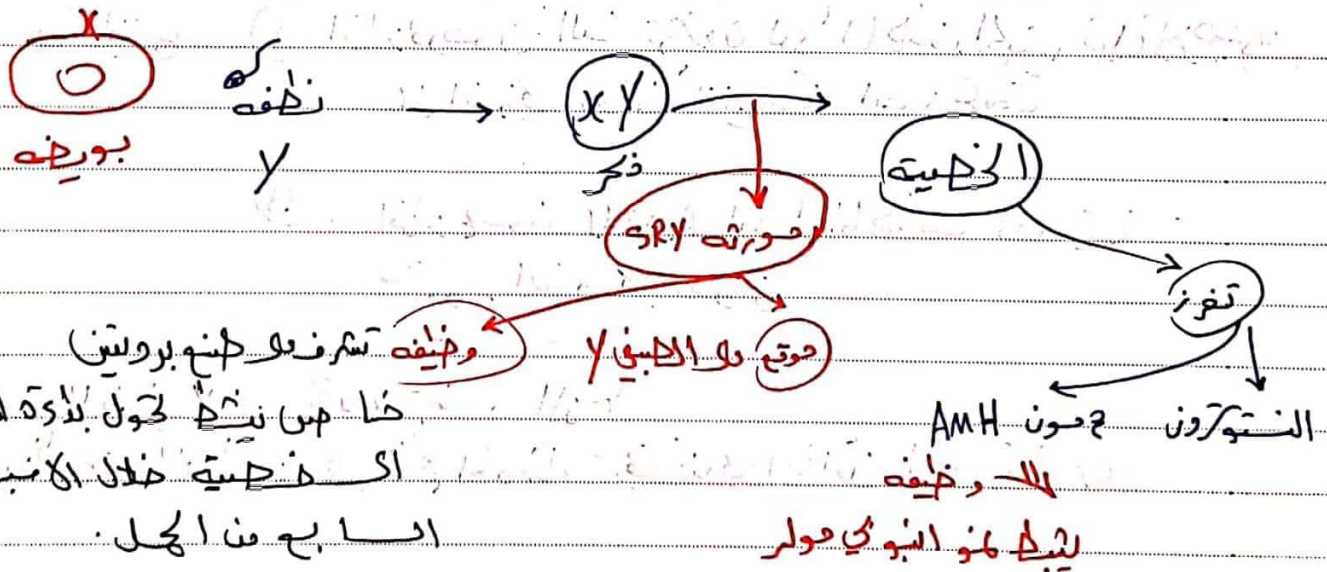 X
بويضه
نطفه
Y
XY
ذكر
الخصية
مورثه SRY
تفرز
موقع على الصبغي Y
وظيفه تشرف على صنع بروتين
خاص ينشط تحول بداءة
الى خصية خلال الاسبـ
السابع من الحمل.
هرمون AMH
وظيفه
يثبط نمو انبوبي مولر